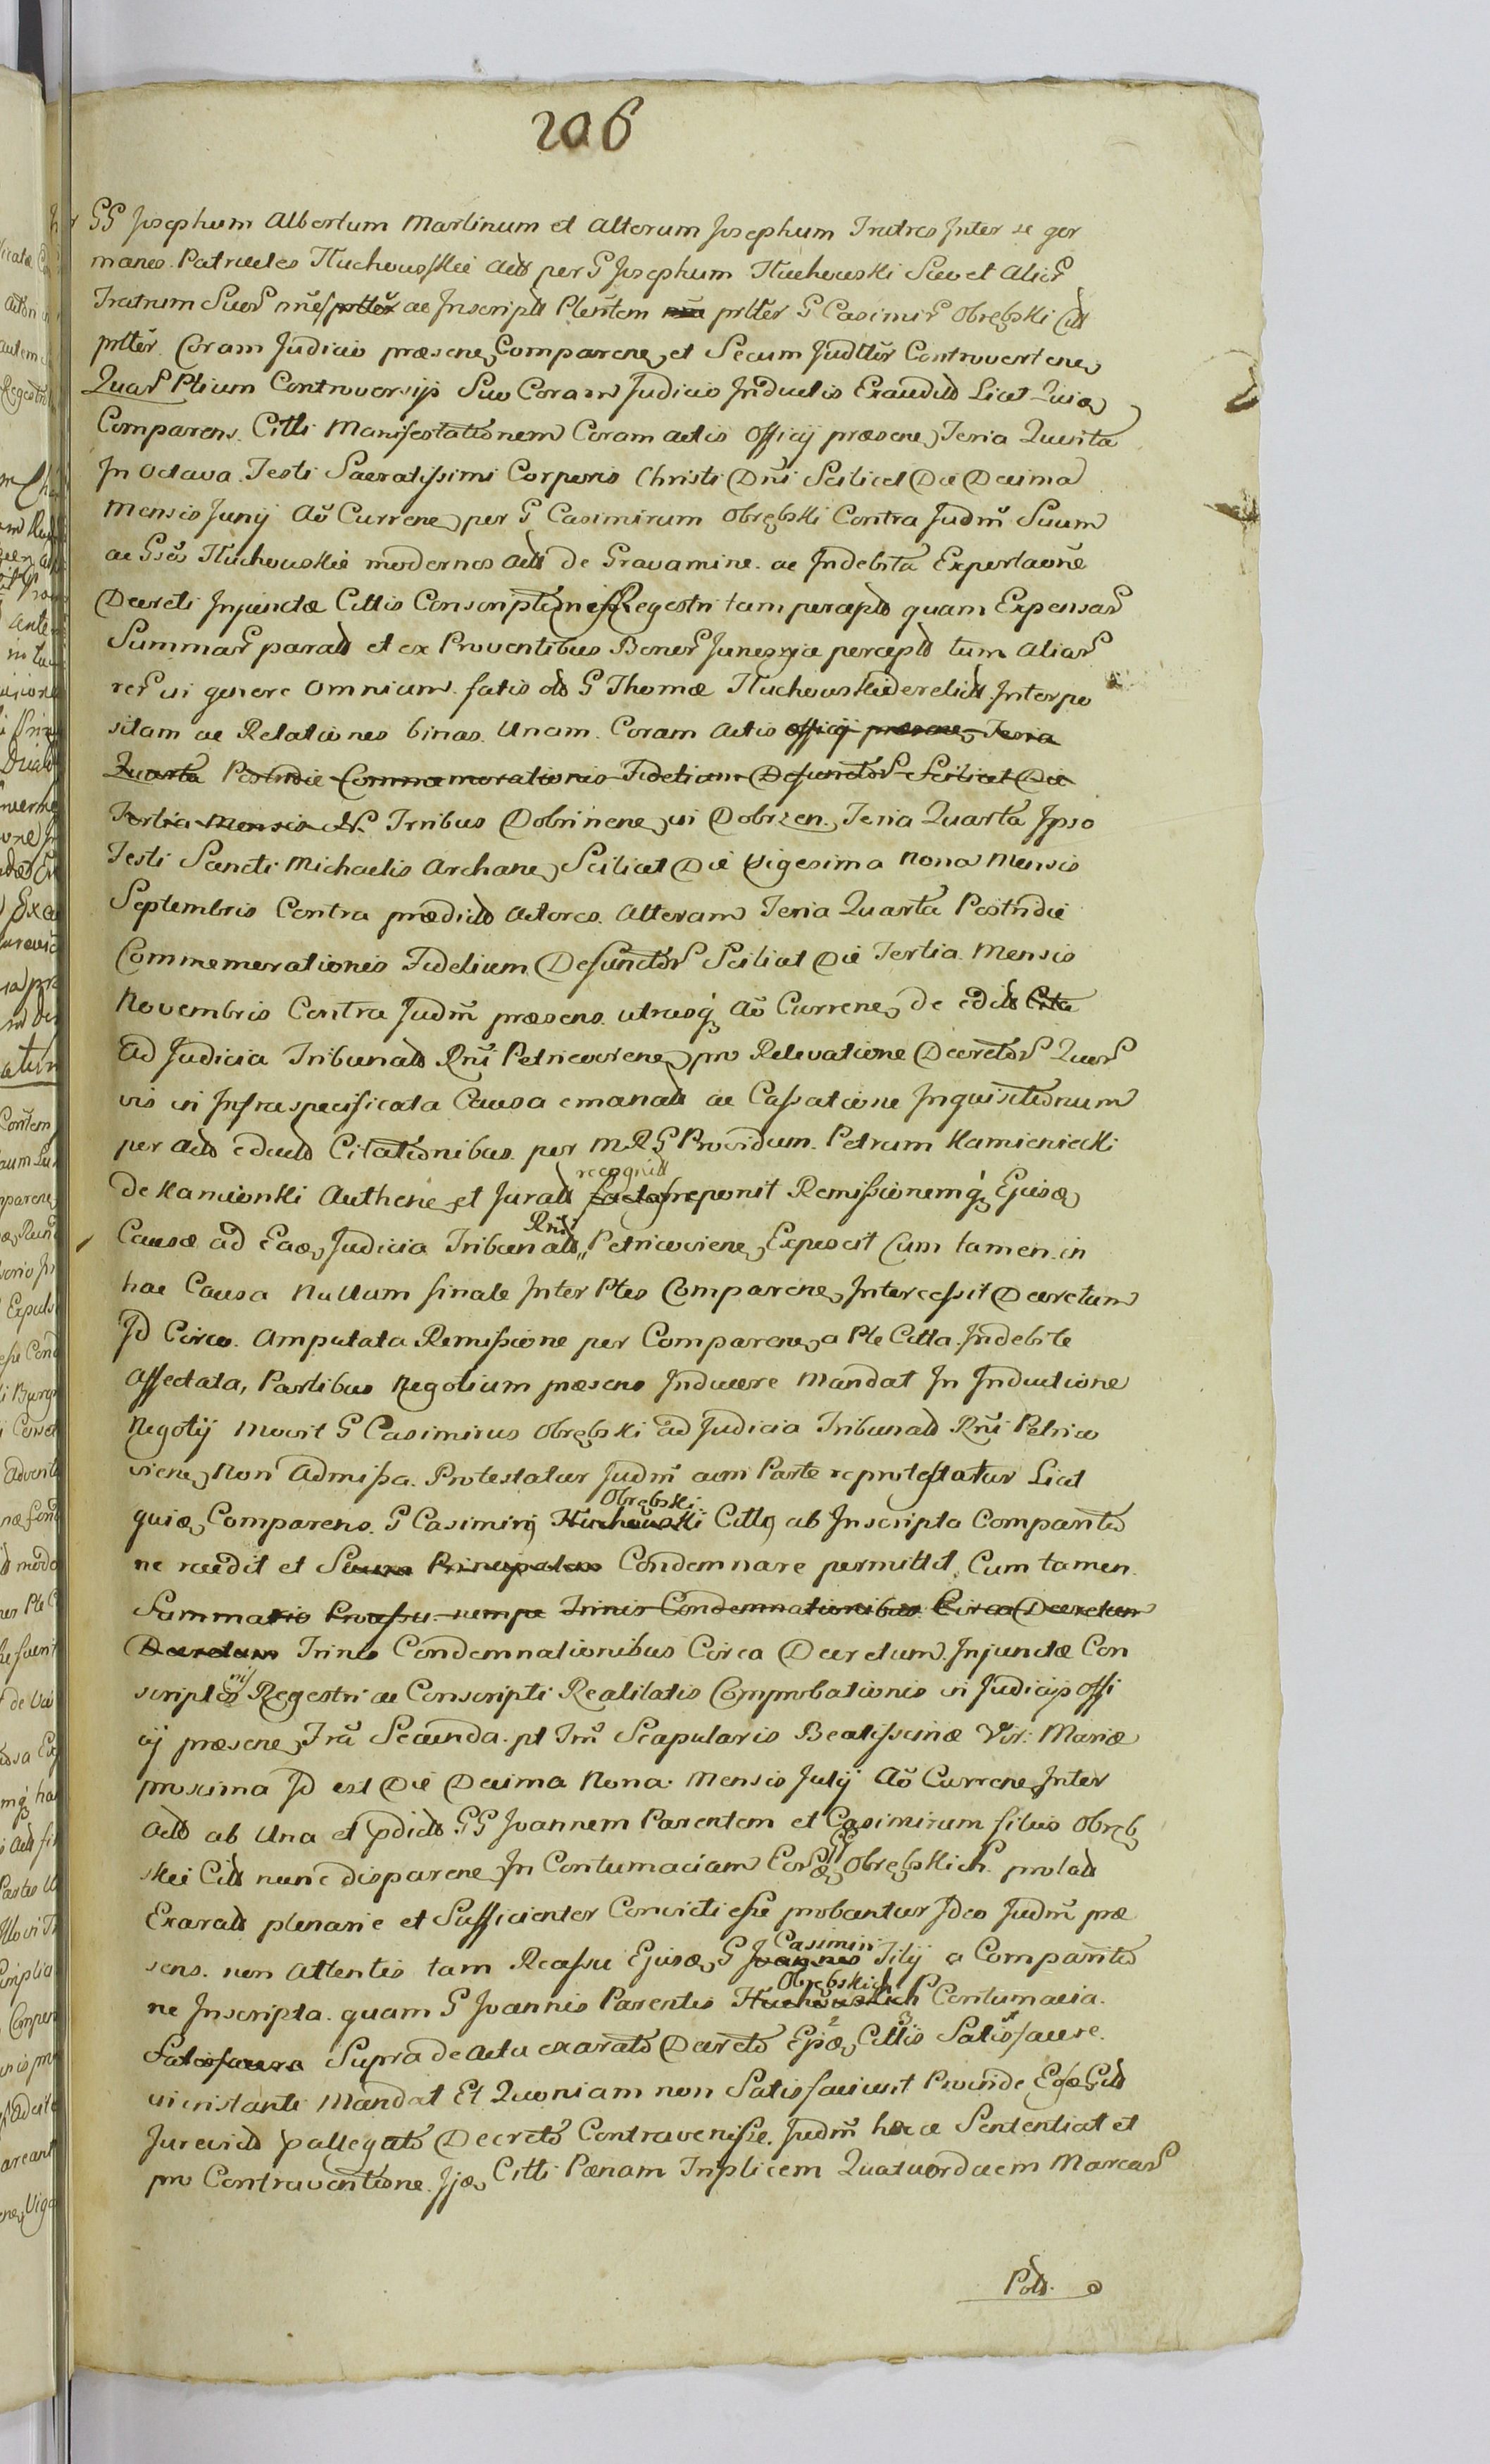 206
GG Josephum Albertum Martinum et Alterum Josephum Fratres Inter se ger
manos Patrueles Kuchowskie Act per G Josephum Kuchowski Suo et Alior
Fratrum Suor nnē prltēr ac Inscript Plenītem prltēr G Casimir Obrębski Cit
prltēr Coram Judicio præsene Comparene et Secum Judltēr Controvertene
Quar Ptium Controversijs Suo Coram Judicio Inductis Exaudit Licet Quia
Comparens Citti Manifestationem Coram Actis Officij præsene Feria Quinta
In Octava Festi Sacratissimi Corporis Christi Dnī Scilicet Die Decima
Mensis Junij Aō Currene per G Casimirum Obrębski Contra Judm̄ Suum
ac Gsos Kuchowskie modernos Act de Gravamine ac Indebita Exportaōne
Decreti Injunctæ Cittis Conscriptionis Regestri tam percept quam Expensar
Summar parat et ex Proventibus Bonor Junegzia percept tum Aliar
rer in genere Omnium fatis olt G Thomæ Kuchowski derelict Interpo
sitam ac Relationes binas Unam Coram Actis officij præsene Feria
Quarta Postridie Commemorationis Fidelium Defunctor Scilicet Die
Tertia Mensis N. Trribus Dobrinene in Dobrzen. Feria Quarta Ipso
Festi Sancti Michaelis Archane Scilicet Die Vigesima Nona Mensis
Septembris Contra prædict Actores Alteram Feria Quarta Postridie
Commemorationis Fidelium Defunctor Scilicet Die Tertia Mensis
Novembris Contra Judm̄ præsens utrasq Aō Currene de edit Cita
Ad Judicia Tribunalt Rnī Petricoviene pro Relevatione Decretor Quor
vis in Infraspecificata Causa emanat ac Cassatione Inquisitionum
per Act educt Citationibus per M R G Providum Petrum Kamieniecki
de Kamionki Authene et Jurat facta recognit reponit Remissionemq Ejusæ
Causæ ad Eaæ Judicia Tribunalt Rnī Petricoviene Exposcit Cum tamen in
hac Causa Nullum finale Inter Ptes Comparene Intercessit Decretum
Id Circo Amputata Remissione per Comparene a Pte Citta Indebite
Affectata, Partibus Negotium præsens Inducere Mandat In Inductione
Negotij Movit G Casimirus Obrębski ad Judicia Tribunalt Rnī Petrico
viene Non Admissa Protestatur Judm̄ cum Parte reprotestatur Licet
quiæ Comparens G Casimirq Kuchowski Obrębski Cittq ab Inscripta Comparitio
ne recedit et Suum Principalem Condemnare permittit Cum tamen
Summario Processu nempe Trinis Condemnationibus Circa Decretum
Decretum Trinis Condemnationibus Circa Decretum Injunctæ Con
scriptionis Regestri ac Conscripti Realitatis Comprobationis in Judicijs Offi
cij præsene Frā Secunda pt Fm̄ Scapularis Beatissimæ Vir: Mariæ
proxima Id est Die Decima Nona Mensis Julij Aō Currene Inter
Act ab Una et pdict GG Joannem Parentem et Casimirum filius Obręb
skie Cit nunc disparene In Contumaciam Eorūæ GG Obrębskich prolat
Exarat plenarie et Sufficienter Convicti esse probantur Ideo Judm̄ præ
sens non Attentis tam Recessu Ejusæ G Joannis Casimiri Filij a Comparitio
ne Inscripta quam G Joannis Parentis Kuchowskich Obrębskich Contumacia
Satisfacere Supra de Actu exarato Decreto Episæ Cittis Satisfacere
in instanti Mandat Et Quoniam non Satisfaciunt Proinde Eosæ Cit
Jurevict pallegato Decreto Contravenisse Judm̄ hocce Sententiat et
pro Contraventione Ijsæ Citti Pænam Triplicem Quatuordecem Marcar
Polt.